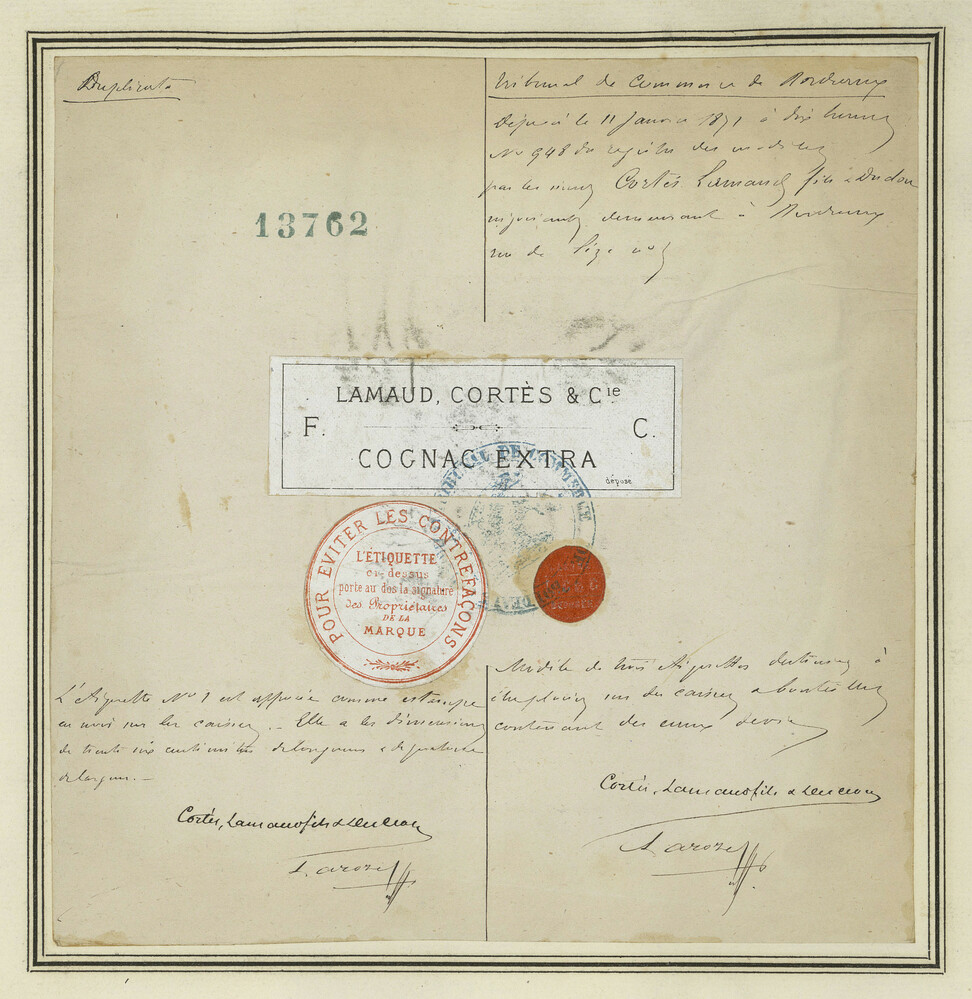 Duplicata
Tribunal de Commerce de Bordeaux
Déposé le 11 Janvier 1871 à dix heures
No 948 du registre des modèles
par les sieurs Cortès Lamaud fils & Dudon
négociants demeurant à Bordeaux
rue de
13762
LAMAUD, CORTÈS & Cie
F. C.
COGNAC EXTRA
déposé
TRIBUNAL DE COMMERCE
POUR EVITER LES CONTREFAÇONS
L'ÉTIQUETTE
ci-dessus
porte au dos la signature
des Propriétaires
DE LA
MARQUE
L'étiquette No 1 est apposée comme estampe
en noir sur les caisses. Elle a les dimensions
de trente six centimètres de longueur & de quatorze
de largeur.
Cortès, Lamaud fils & Dudon
Modèle de trois étiquettes destinées à
être employées sur des caisses & bouteilles
contenant des eaux de vie
Cortès, Lamaud fils & Dudon